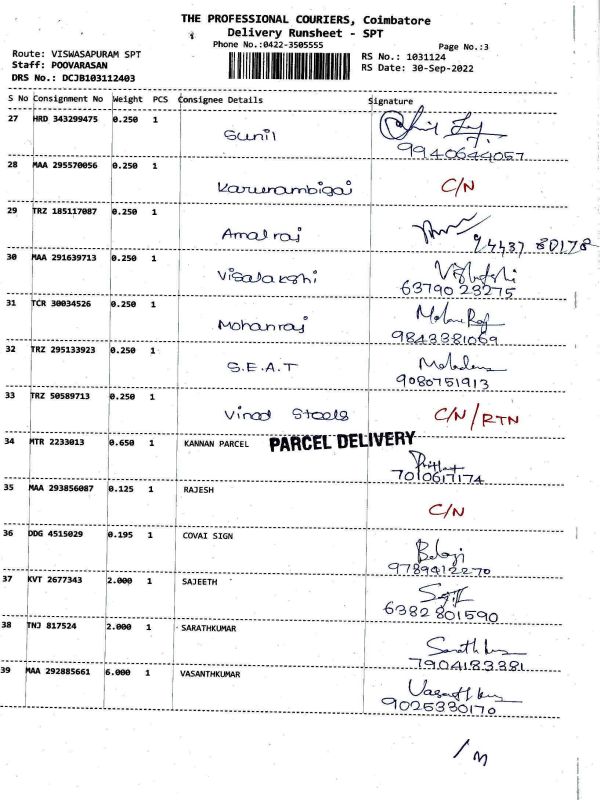 THE PROFESSIONAL COURIERS, Coimbatore
Delivery Runsheet - SPT
Phone No.:0422-3505555
Page No.:3
Route: VISWASAPURAM SPT
RS No.: 1031124
Staff: POOVARASAN
RS Date: 30-Sep-2022
DRS No.: DCJB103112403
S No Consignment No Weight PCS Consignee Details Signature
27 HRD 343299475 0.250 1 Sunil
9940644057
28 MAA 295570056 0.250 1 Karunambigai C/N
29 TRZ 185117087 0.250 1 Amalraj
94437 80178
30 MAA 291639713 0.250 1 Visalakshi
6379023275
31 TCR 30034526 0.250 1 Mohanraj Mohan Raj
9843381069
32 TRZ 295133923 0.250 1 S.E.A.T
9080751913
33 TRZ 50589713 0.250 1 Vinod Steels C/N / RTN
34 MTR 2233013 0.650 1 KANNAN PARCEL PARCEL DELIVERY
7010617174
35 MAA 293856087 0.125 1 RAJESH C/N
36 DDG 4515029 0.195 1 COVAI SIGN Balaji
9789412270
37 KVT 2677343 2.000 1 SAJEETH
6382801590
38 TNJ 817524 2.000 1 SARATHKUMAR
7904183381
39 MAA 292885661 6.000 1 VASANTHKUMAR
9025330170